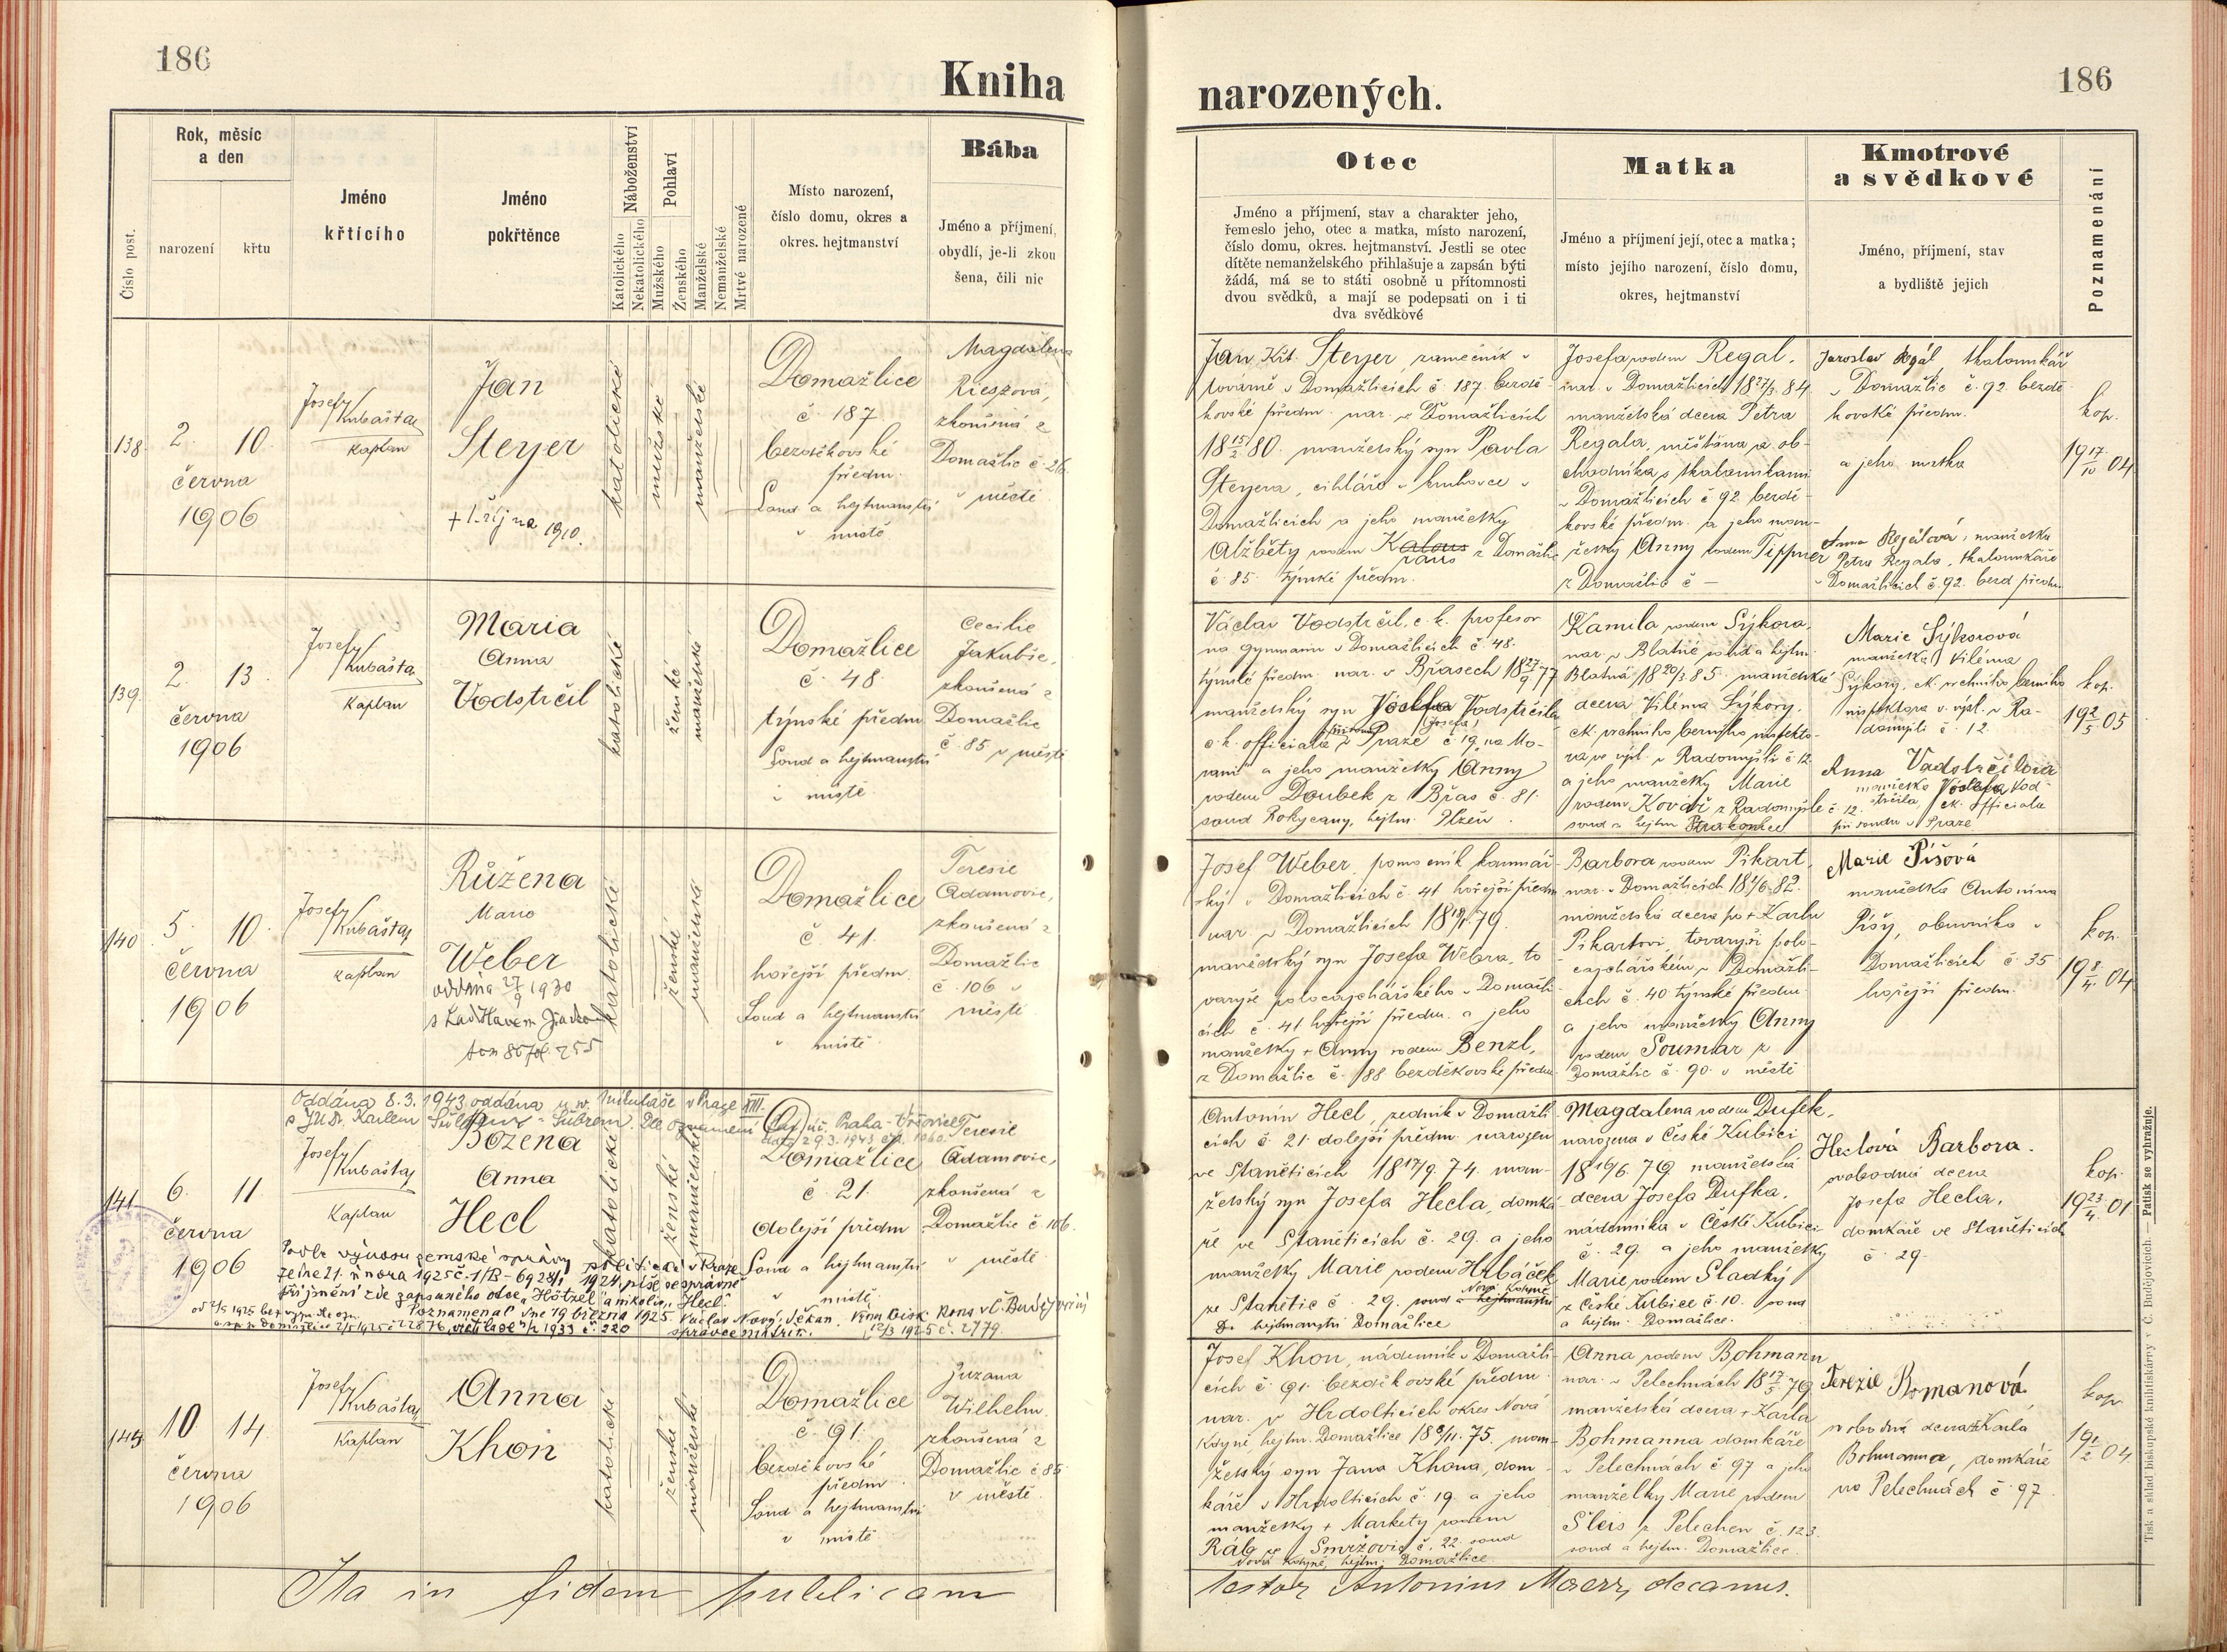 186
Kniha
narozených.
186
Číslo post.
Rok, měsíc
a den
narození
křtu
Jméno
křtícího
Jméno
pokřtěnce
Náboženství
Katolického
Nekatolického
Pohlaví
Mužského
Ženského
Manželské
Nemanželské
Mrtvé narozené
Místo narození,
číslo domu, okres a
okres. hejtmanství
Bába
Jméno a příjmení,
obydlí, je-li zkou
šena, čili nic
Otec
Jméno a příjmení, stav a charakter jeho,
řemeslo jeho, otec a matka, místo narození,
číslo domu, okres. hejtmanství. Jestli se otec
dítěte nemanželského přihlašuje a zapsán býti
žádá, má se to státi osobně u přítomnosti
dvou svědků, a mají se podepsati on i ti
dva svědkové
Matka
Jméno a příjmení její, otec a matka;
místo jejího narození, číslo domu,
okres, hejtmanství
Kmotrové
a svědkové
Jméno, příjmení, stav
a bydliště jejich
Poznamenání
138
2. 10.
června
1906
Josef Kubašta
Kaplan
Jan
Steyer
+ 1. října 1910.
katolické
mužské
manželské
Domažlice
č. 187
bezděkovské
předm.
Soud a hejtmanství
v místě
Magdalena
Rieszová,
zkoušená z
Domažlic č. 26.
v městě
Jan Kř. Steyer, zámečník v
továrně v Domažlicích č. 187. bezdě-
kovské předm. nar. v Domažlicích
18 15/2 80. manželský syn Pavla
Steyera, cihláře v
Domažlicích a jeho manželky
Alžběty rodem z Domažlic
č. 85. týnské předm.
Josefa rodem Regal.
nar. v Domažlicích 18 27/3. 84
manželská dcera Petra
Regala, měštana a ob-
chodníka s tkalounkami
v Domažlicích č 92. bezdě-
kovské předm. a jeho man-
želky Anny rodem Tippner
z Domažlic č —
Jaroslav Regál tkalounkář
v Domažlic č. 92 bezdě
kovské předm.
a jeho matka
Anna Regálová, manželka
Petra Regala, tkalounkáře
v Domažlicích č. 92. bezd předm.
kop.
19 17/10 04
139.
2. 13.
června
1906
Josef Kubašta
Kaplan
Maria
Anna
Vodstrčil
katolické
ženské
manželské
Domažlice
č. 48.
týnské předm
Soud a hejtmanství
v místě.
Cecilie
Jakubic,
zkoušená z
Domažlic
č. 85 v městě
Václav Vodstrčil, c. k. profesor
na gymnasiu v Domažlicích č. 48.
týnské předm. nar. v Břasech 18 27/9 77
manželský syn Vodstrčila
(Josefa)
c. k. officiala v Praze č 19, na Mo-
rani a jeho manželky Anny
rodem Doubek z Břas č. 81.
soud Rokycany, hejtm. Plzeň.
Kamila rodem Sýkora,
nar. v Blatné soud a hejtm.
Blatná 18 20/3 85. manželská
dcera Viléma Sýkory,
ck. vrchního berního inspekto-
ra ve výsl. v Radomyšli č. 12
a jeho manželky Marie
rodem Kovář z Radomyšle č. 12.
soud a hejtm Strakonice
Marie Sýkorová
manželka Viléma
Sýkory, ck. vrchního berního
inspektora v. výsl. v Ra-
domyšli č. 12.
Anna Vodstrčilová
manželka Josefa Vod-
strčila, ck. officiala
při soudu v Praze
kop.
19 2/5 05
140
5. 10.
června
1906
Josef Kubašta
kaplan
Růžena
Marie
Weber
oddána 27/9 1930
s Ladislavem
katolické
ženské
manželské
Domažlice
č 41.
hořejší předm.
Soud a hejtmanství
v místě
Teresie
Adamovic,
zkoušená z
Domažlic
č. 106 v
městě
Josef Weber, pomocník kominář-
ský v Domažlicích č. 41 hořejší předm
nar. v Domažlicích 18 19/1. 79.
manželský syn Josefa Webra, to
varyše v Domažli-
cích č. 41. hořejší předm. a jeho
manželky + Anny rodem Benzl,
z Domažlic č. 188 bezděkovské předm.
Barbora rodem Pikart,
nar. v Domažlicích 18 1/6. 82.
manželská dcera po + Karlu
Pikartovi, tovaryši
v Domažli-
cích č. 40 týnské předm.
a jeho manželky Anny
rodem Soumar z
Domažlic č. 90. v městě
Marie Píšová
manželka Antonína
Píšy, obuvníka v
Domažlicích č. 35
hořejší předm.
kop.
19 8/4. 04
Oddána 8.3. 1943 oddána u sv. Mikuláše v Praze XIII.
s JUDr. Karlem Dle oznámení úř. Praha-Vršovice
29.3.1943
141.
6. 11.
června
1906
Josef Kubašta
Kaplan
Božena
Anna
Hecl
katolické
ženské
manželské
Domažlice
č. 21.
dolejší předm
Soud a hejtmanství
v místě.
Teresie
Adamovic,
zkoušená z
Domažlic č. 106.
v městě.
Podle výnosu zemské správy politické v Praze
ze dne 21. února 1925 č. 1/B-6928/1 1924, píše se správně
příjmení zde zapsaného otce „Hötzel" a nikoliv „Hecl".
Poznamenal dne 19 března 1925. Václav Nový, děkan.
správce matrik.
12/3 1925 č. 2779.
Antonín Hecl, zedník v Domažli-
cích č. 21. dolejší předm. narozen
ve Staněticích 18 17/9. 74. man-
želský syn Josefa Hecla, domká
ře ve Staněticích č. 29. a jeho
manželky Marie rodem Hrbáček
ze Stanětic č 29. soud Nová Kdyně
hejtmanství Domažlice
Magdalena rodem Dufek,
narozena v České Kubici
18 16/6 79 manželská
dcera Josefa Dufka,
nádeníka v České Kubici
č. 29. a jeho manželky
Marie rodem Sladký
z České Kubice č. 10. soud
a hejtm. Domažlice.
Heclová Barbora.
svobodná dcera
Josefa Hecla,
domkáře ve Staněticích
č. 29.
kop.
19 23/4. 01
10. 14.
června
1906
Josef Kubašta
Kaplan
Anna
Khon
katolické
ženské
manželské
Domažlice
č. 91.
bezděkovské
předm.
Soud a hejtmanství
v místě
Zuzana
Wilhelm,
zkoušená z
Domažlic č. 85
v městě.
Josef Khon, nádenník v Domažli-
cích č. 91. bezděkovské předm.
nar. v Hrdolticích okres Nová
Kdyně, hejtm. Domažlice 18 8/11. 75. man-
želský syn Jana Khona, dom-
káře v Hrdolticích č. 19. a jeho
manželky + Markety rodem
Ráb ze Smržovic č. 22. soud
Nová Kdyně, hejtm. Domažlice.
Anna rodem Bohmann
nar. v Pelechách 18 17/5 79
manželská dcera + Karla
Bohmanna domkáře
v Pelechách č 97 a jeho
manželky Marie rodem
Šleis z Pelechen č. 123.
soud a hejtm. Domažlice.
Terezie Bomanová
svobodná dcera + Karla
Bohmanna, domkáře
na Pelechách č. 97
kop
19 1/2 04
Ita in fidem publicam
testor Antonius decanus.
Tisk a sklad biskupské knihtiskárny v Č. Budějovicích. — Patisk se vyhražuje.